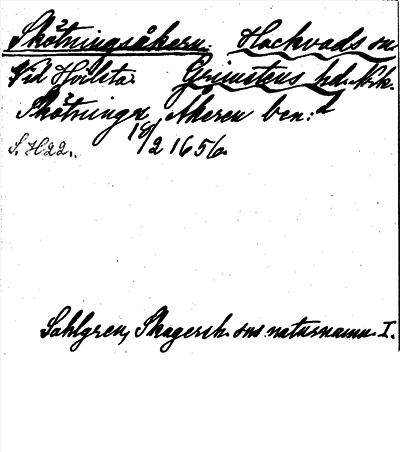 Skötningsåkern. Hackvads sn.
Vid Hvilsta. Grimstens hd. Nrk.
Skötninga Åkeren ben:d
S. H22. 18/2 1656.
Sahlgren, Skagersh. sns naturnamn I.